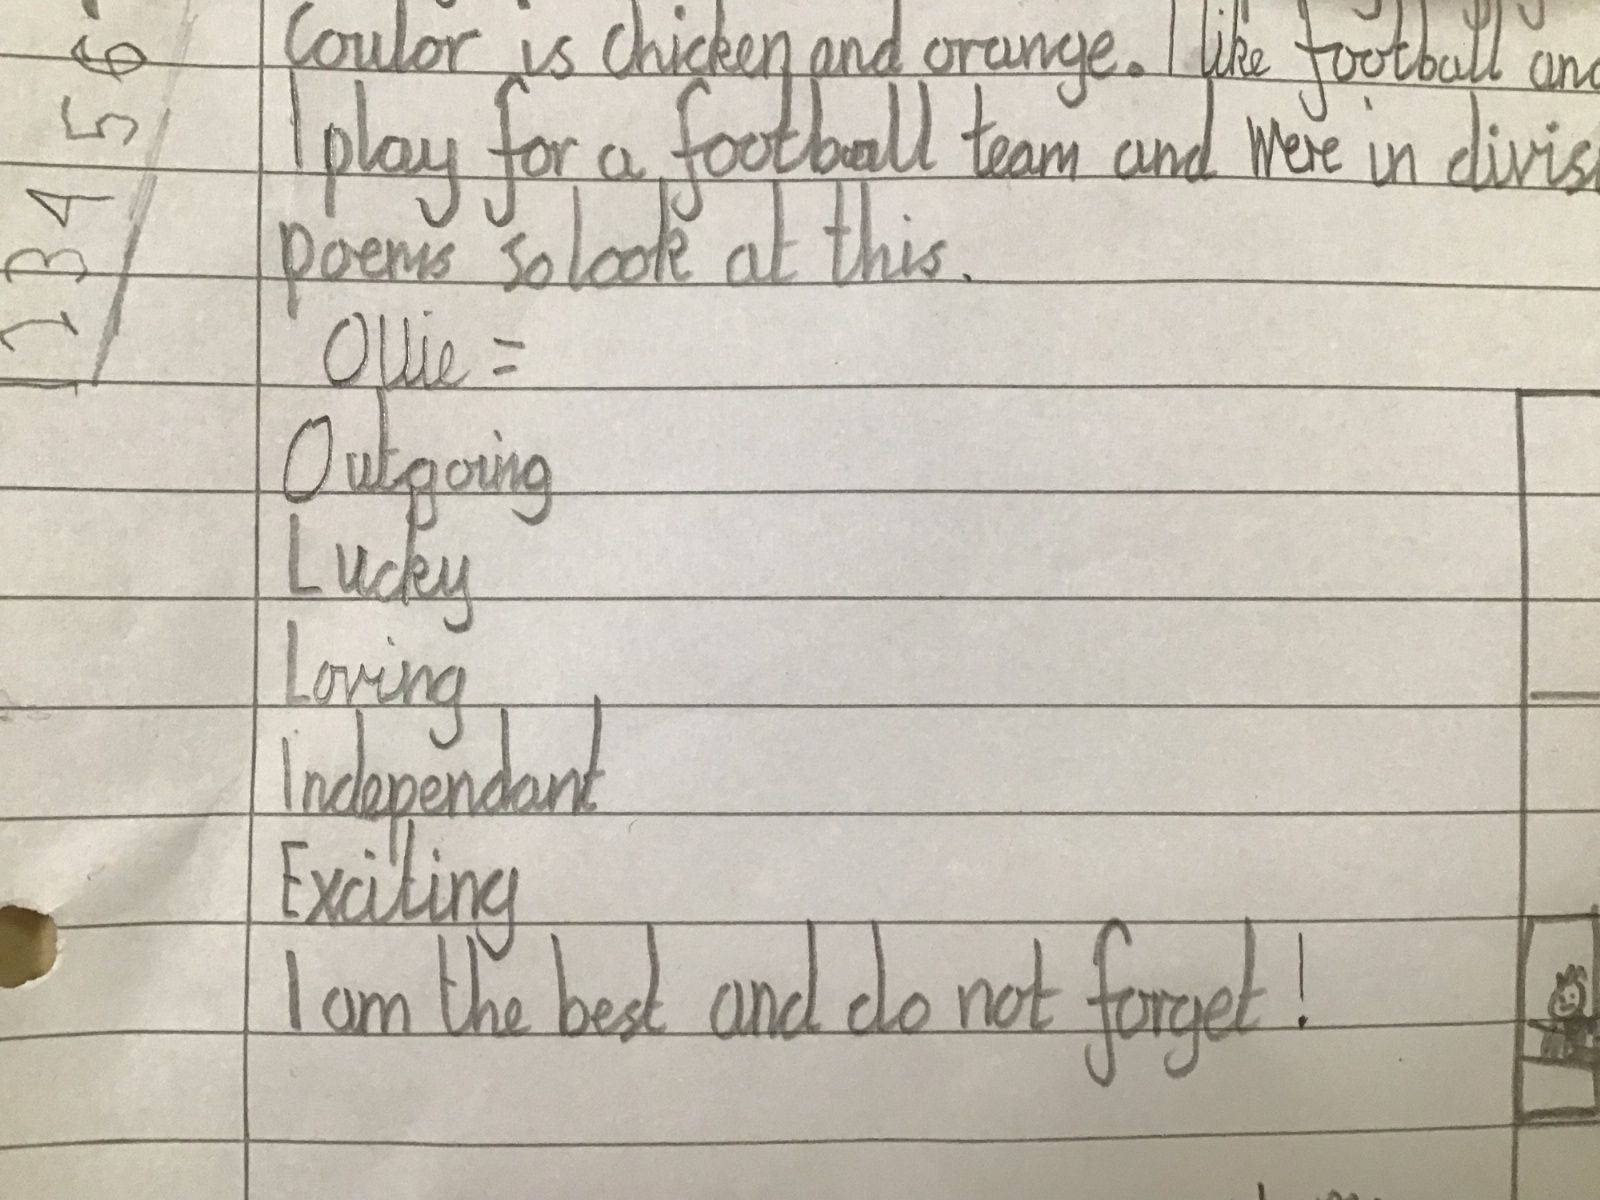 Coulor is chicken and orange. I like football and
I play for a football team and were in
poems so look at this.
Ollie =
Outgoing
Lucky
Loving
Independant
Exciting
I am the best and do not forget!
1 2 3 4 5 6